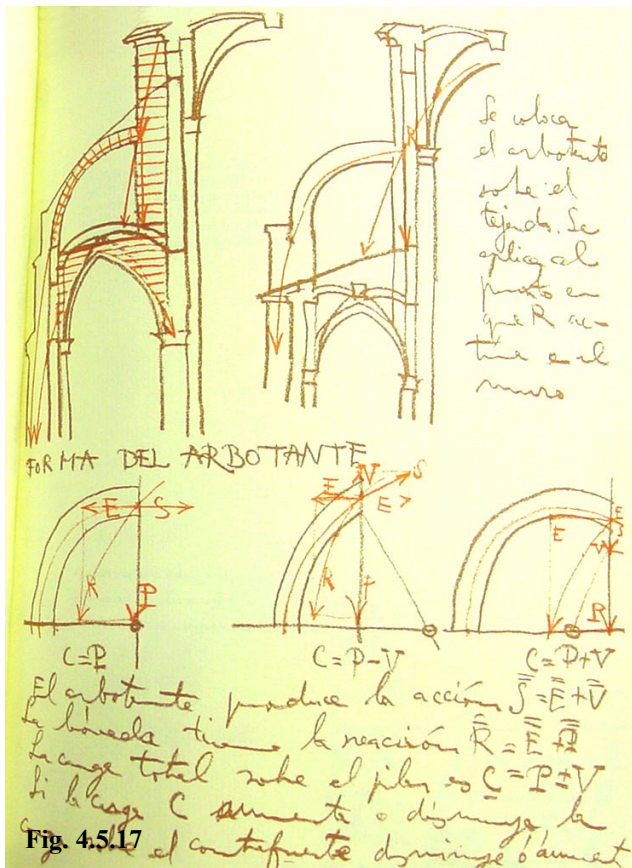 Se coloca
el arbotante
sobre el
tejado. Se
aplica al
punto en
que R ac-
túa en el
muro
R
FORMA DEL ARBOTANTE
E S R P
C=P
V S E E R
C=P-V
E E S V R
C=P+V
El arbotante produce la acción S=E+V
La bóveda tiene la reacción R=E+P
La carga total sobre el pilar es C=P±V
Si la carga C aumenta o disminuye, la
sobre el contrafuerte disminuye ó aument
Fig. 4.5.17